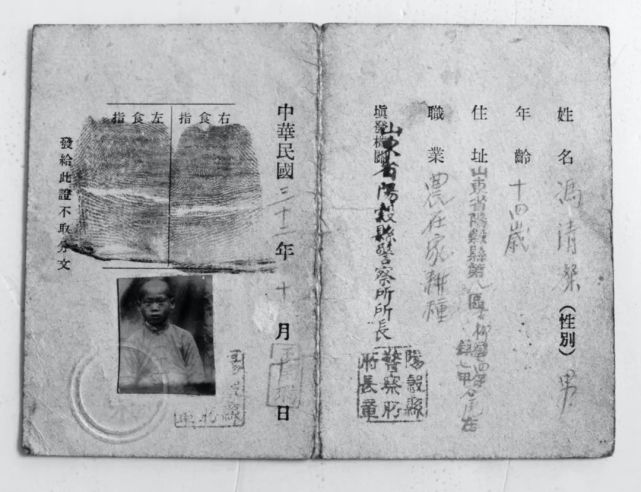 姓名 馮清 (性別) 男
年齡 十四歲
住址 山東省陽穀縣第八區
職業 農在家耕種
填發機關 山東省陽穀縣警察所所長
陽穀縣
警察所
所長章
中華民國三十二年十月 日
右食指
左食指
發給此證不取分文